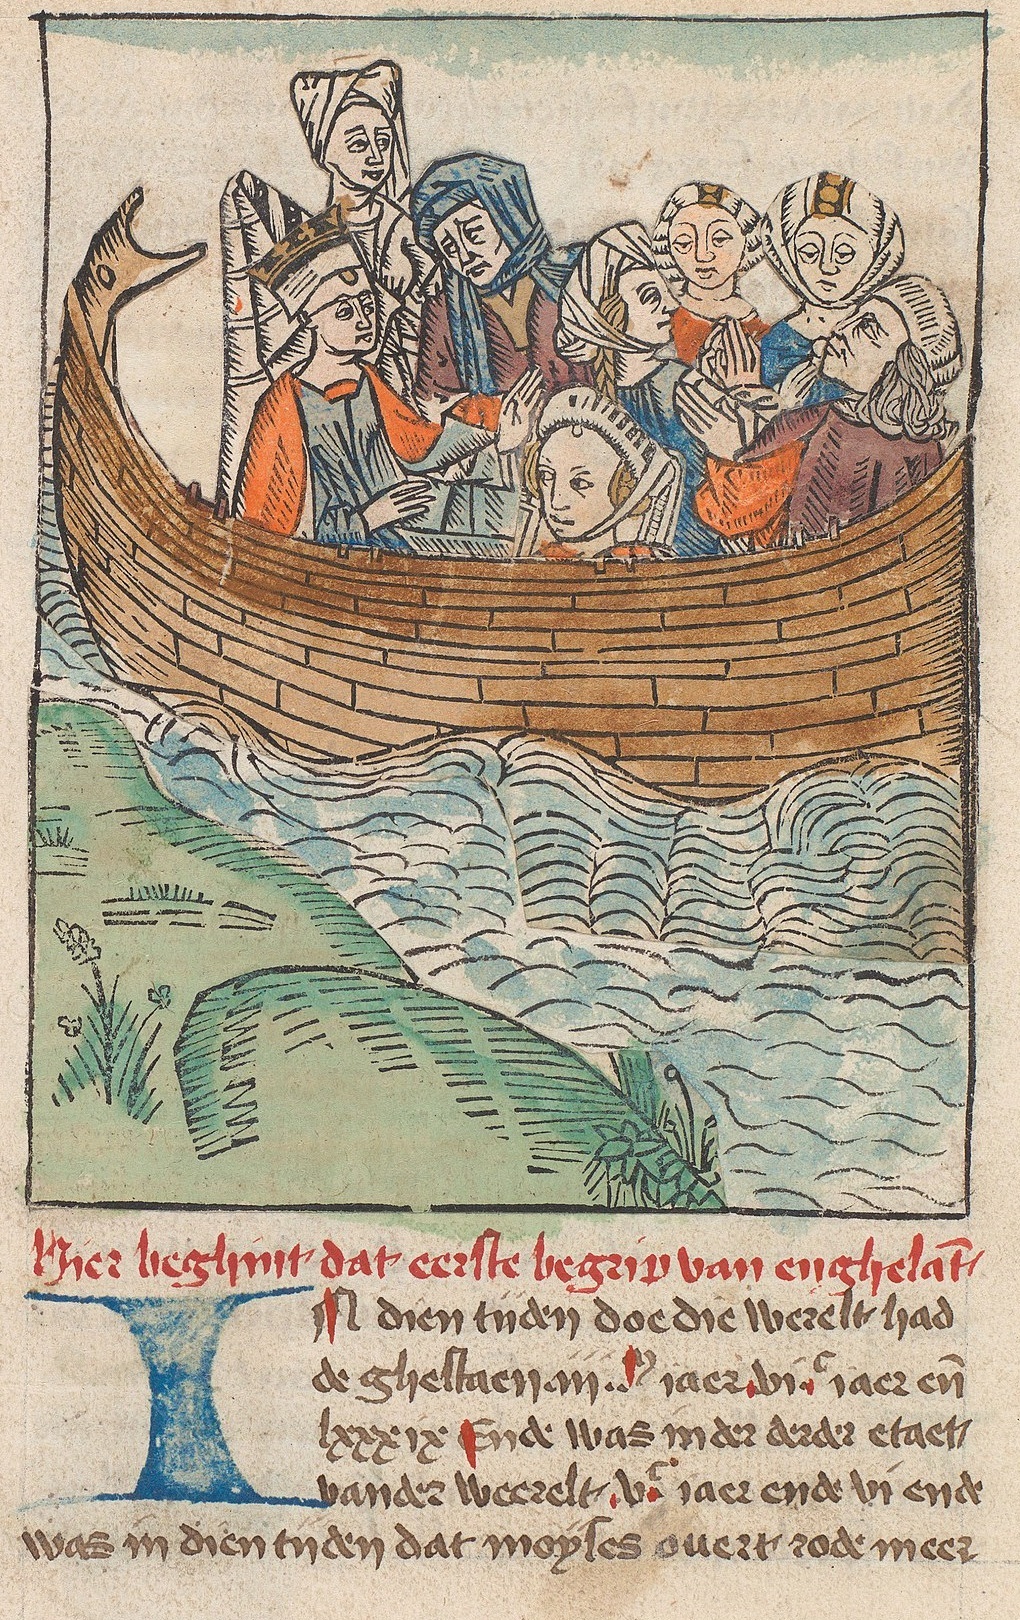 Hier beghint dat eerste begrip van enghelāt
IN dien tijden doe die werelt had
de ghestaen .iij.ᴹ iaer .vi.ᶜ iaer eñ
lxxxix Ende was in der derder etaet
vander weerelt .vᶜ. iaer ende vi ende
was in dien tijden dat moyses ouert rode meer